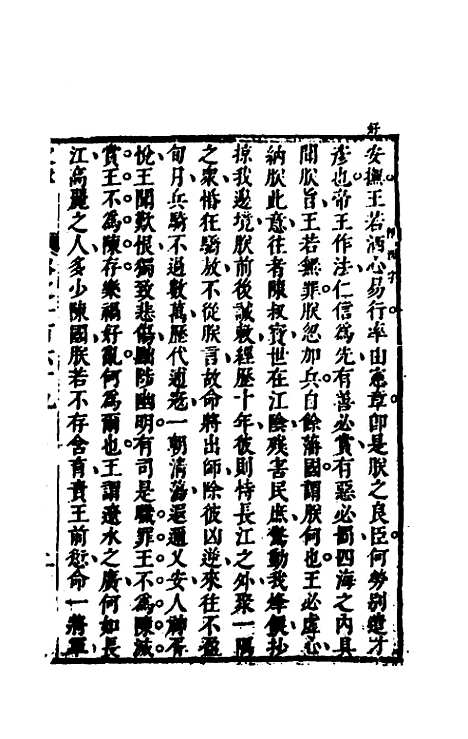 安撫王若洒心易行率由憲章即是朕之良臣何勞別遣才
彥也帝王作法仁信為先有善必賞有惡必罰四海之內具
聞朕旨王若無罪朕忽加兵自餘藩國謂朕何也王必虛心
納朕此意往者陳叔寳世在江陰殘害民庶驚動我烽候抄
掠我邊境朕前後誡敕經歷十年彼則恃長江之外聚一隅
之衆惛狂驕放不從朕言故命將出師除彼凶逆來往不盈
旬月兵騎不過數萬歷代逋宼一朝清蕩遐邇乂安人神胥
恱王聞歎恨獨致悲傷黜陟幽明有司是職罪王不為陳滅
賞王不為陳存樂禍好亂何為爾也王謂遼水之廣何如長
江高麗之人多少陳國朕若不存含育責王前愆命一將軍